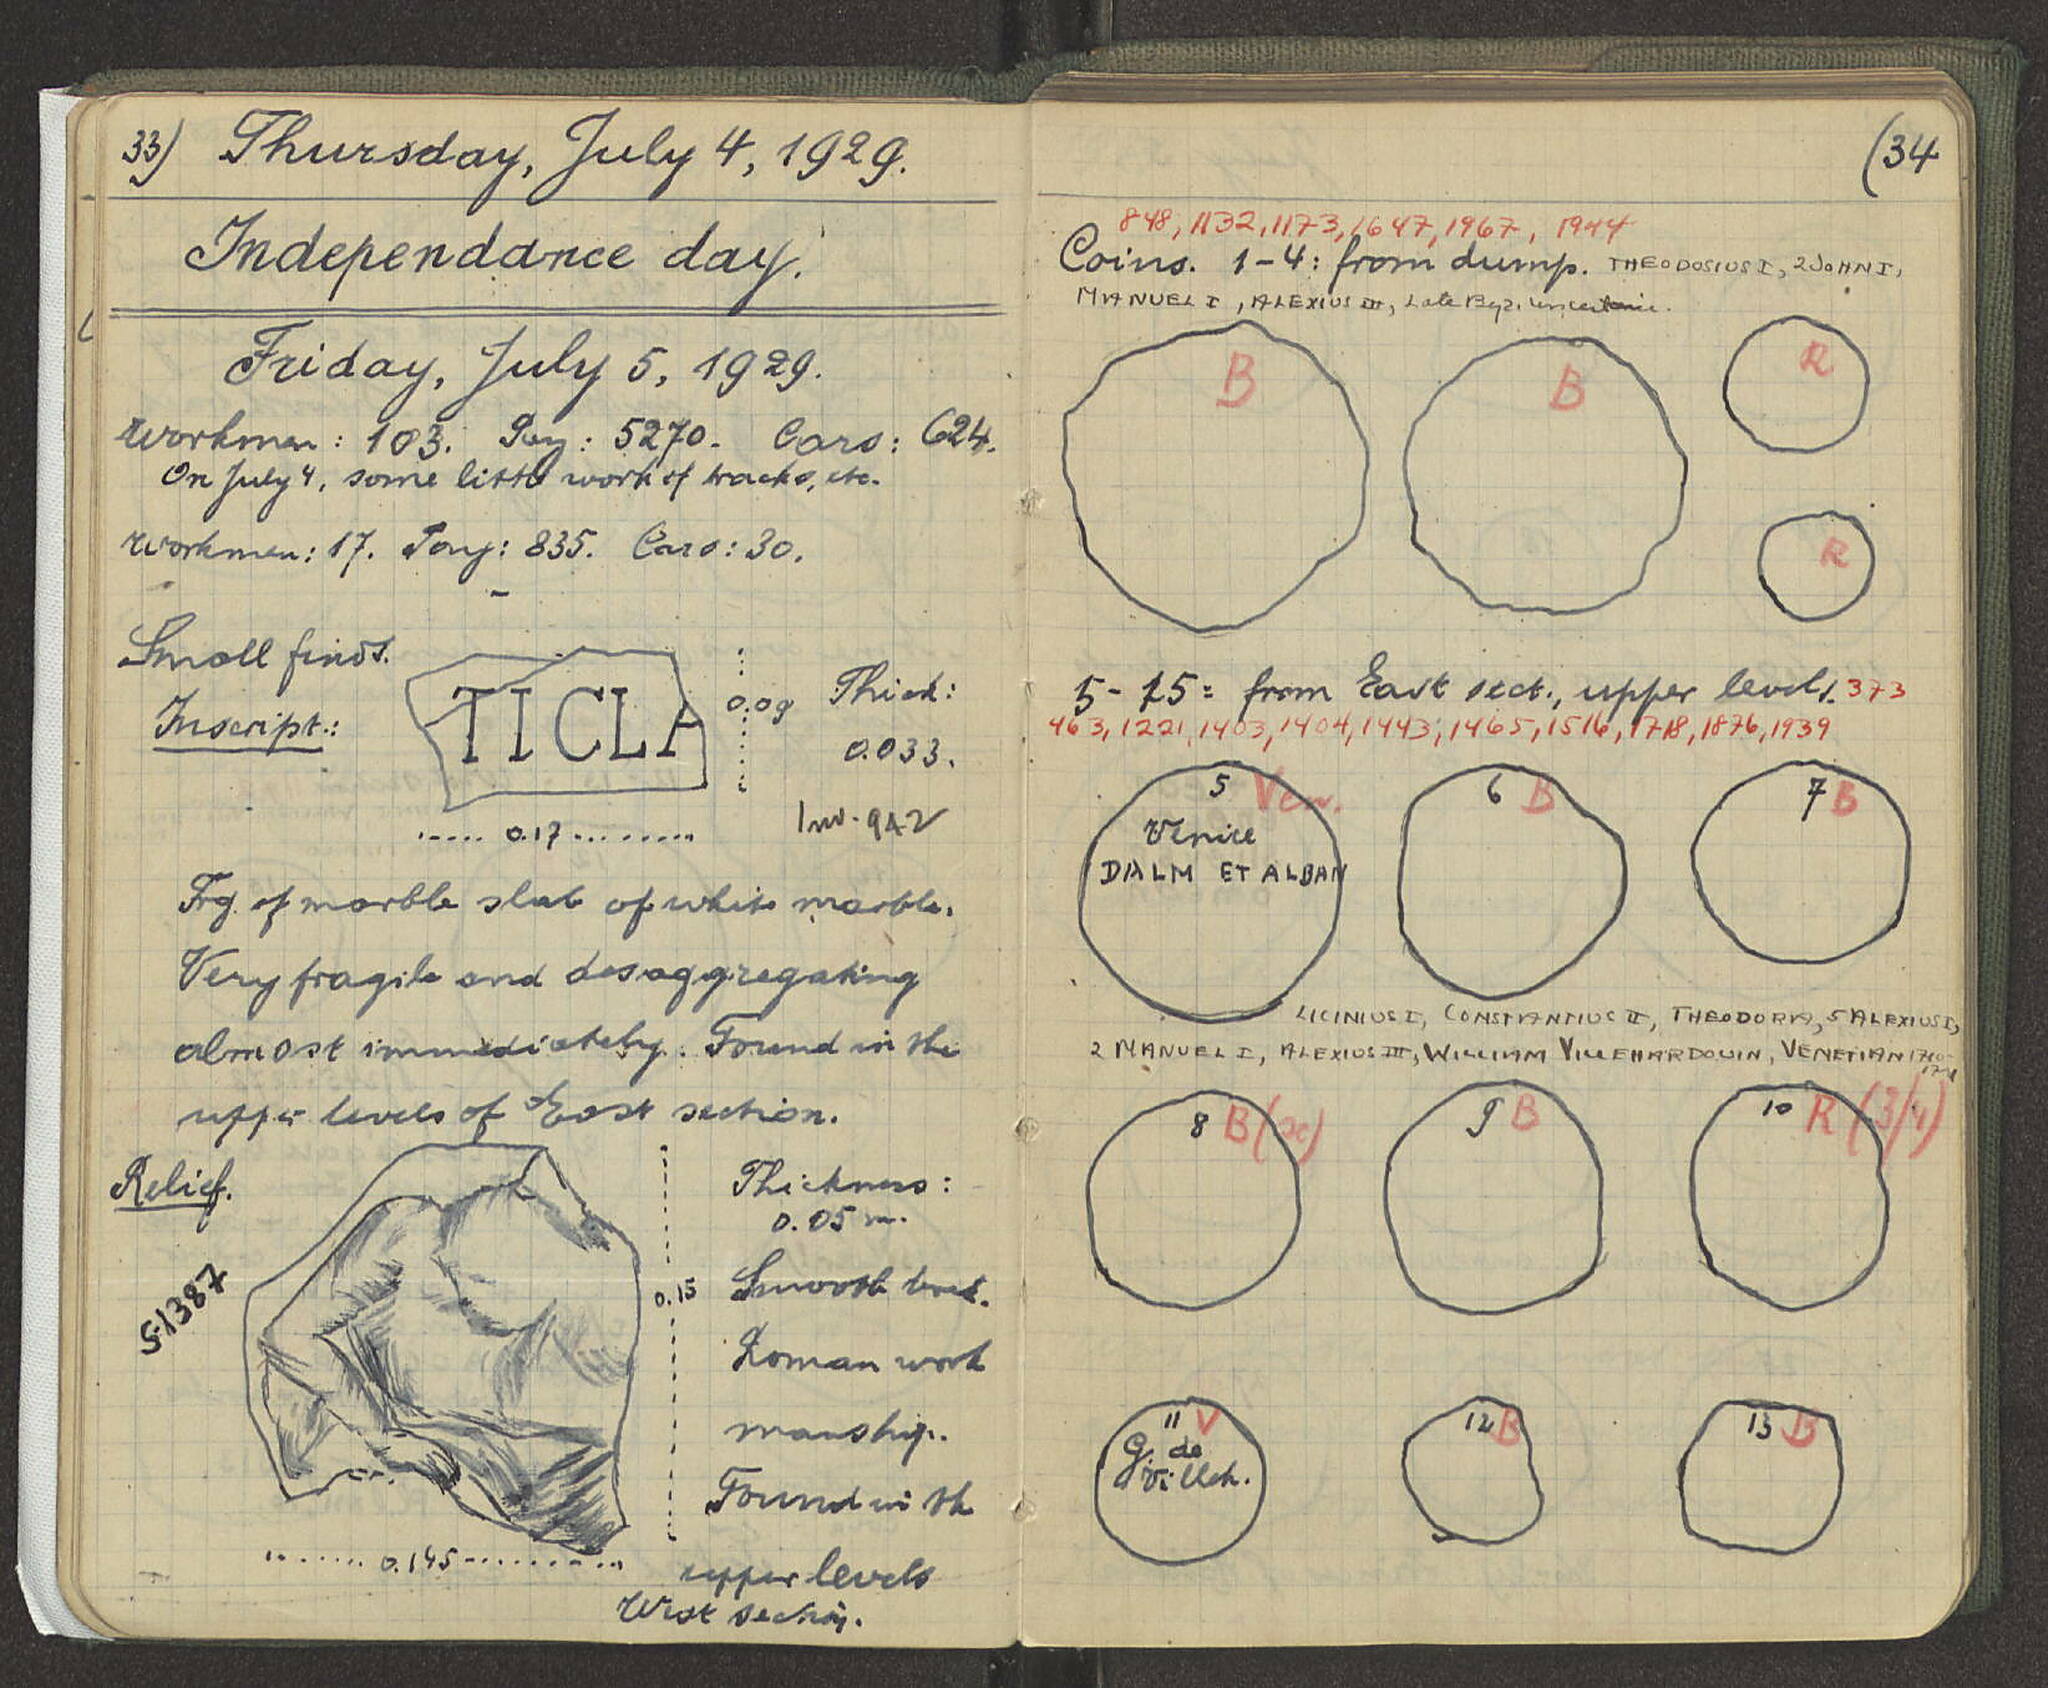 33) Thursday, July 4, 1929.
Independance day.
Friday, July 5, 1929.
Workmen: 103. Pay: 5270.- Cars: 624.
On July 4, some little work of tracks, etc.
Workmen: 17. Pay: 835. Cars: 30.
Small finds.
Inscript.:
TICLA
0.09
Thick:
0.033.
0.17
Inv. 942
Frg. of marble slab of white marble.
Very fragile and desaggregating
almost immediately. Found in the
upper levels of East section.
Relief.
S-1387
0.15
0.145
Thickness:
0.05 m.
Smooth back.
Roman work
manship.
Found in the
upper levels
West section.
(34
848, 1132, 1173, 1647, 1967, 1944
Coins. 1-4: from dump. THEODOSIUS I, 2 JOHN I,
MANUEL I, ALEXIUS III, Late Byz. uncertain.
B
B
R
R
5-15: from East sect., upper levels. 373
463, 1221, 1403, 1404, 1443, 1465, 1516, 1718, 1876, 1939
5 Ven.
Venice
DALM ET ALBAN
6 B
7 B
LICINIUS I, CONSTANTIUS II, THEODORA, 5 ALEXIUS I,
2 MANUEL I, ALEXIUS III, WILLIAM VILLEHARDOUIN, VENETIAN
8 B
9 B
10 R (3/4)
11 V
G. de
Villeh.
12 B
13 B